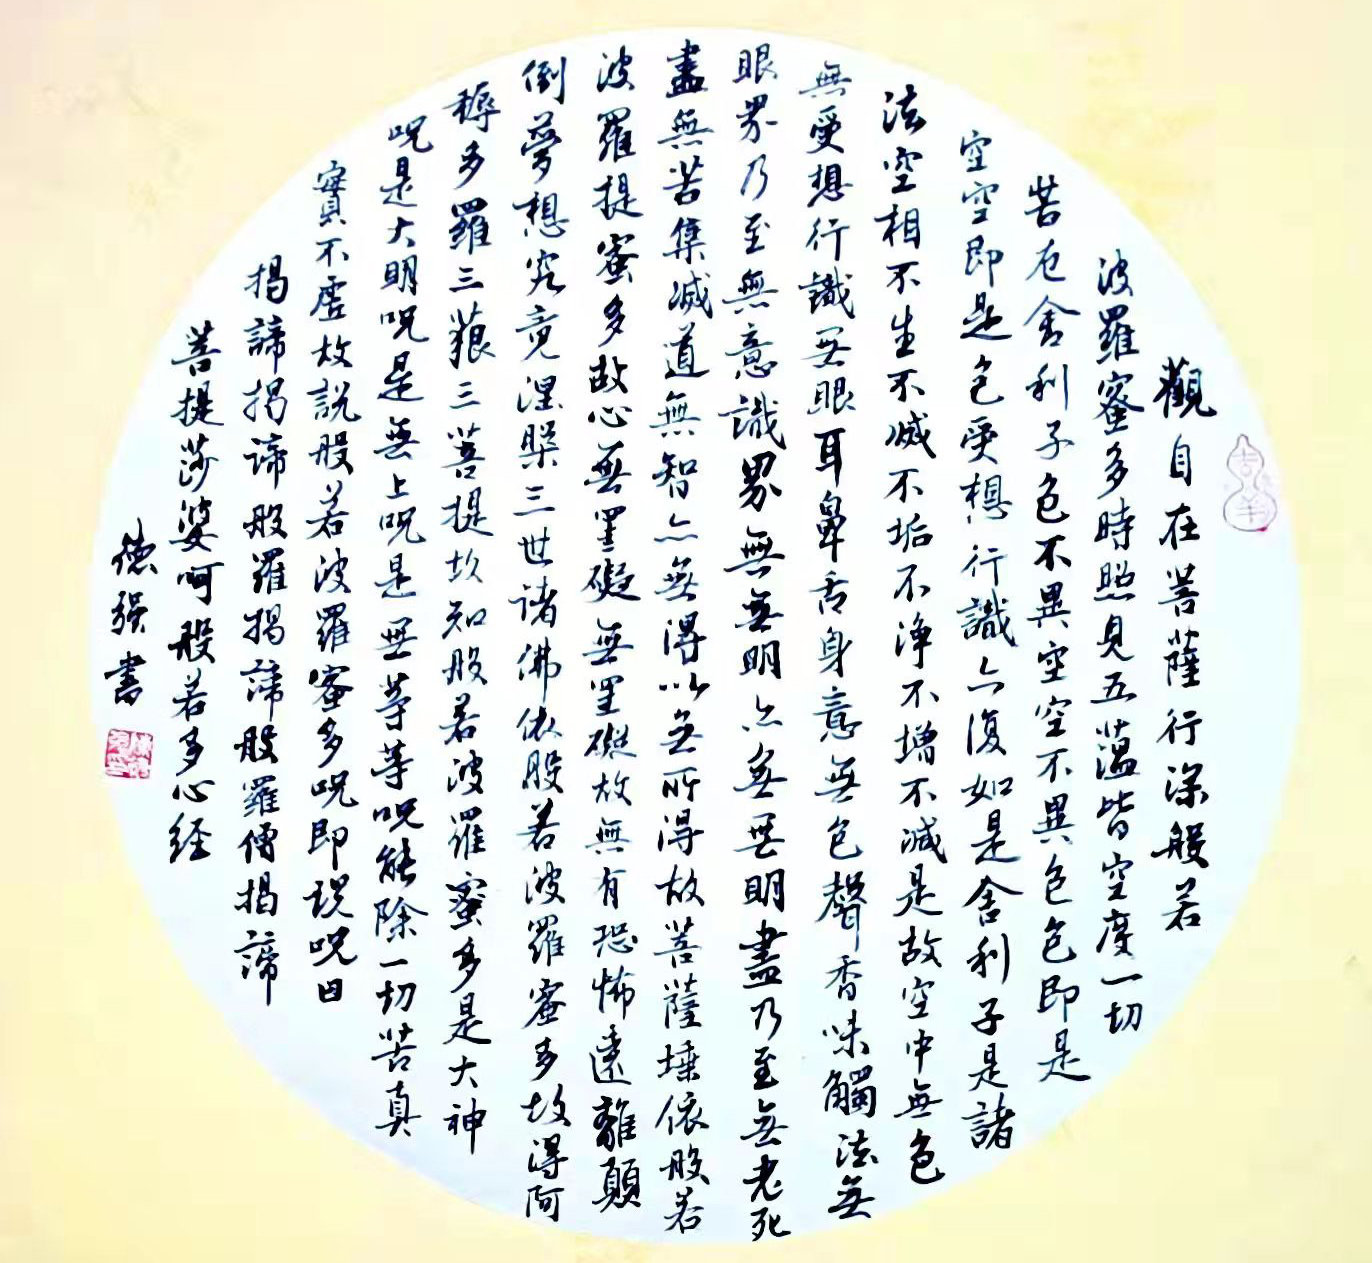 吉羊
觀自在菩薩行深般若
波羅蜜多時照見五蘊皆空度一切
苦厄舍利子色不異空空不異色色即是
空空即是色受想行識亦復如是舍利子是諸
法空相不生不滅不垢不淨不增不減是故空中無色
無受想行識無眼耳鼻舌身意無色聲香味觸法無
眼界乃至無意識界無無明亦無無明盡乃至無老死
盡無苦集滅道無智亦無得以無所得故菩薩埵依般若
波羅提蜜多故心無罣礙無罣礙故無有恐怖遠離顛
倒夢想究竟涅槃三世諸佛依般若波羅蜜多故得阿
耨多羅三藐三菩提故知般若波羅蜜多是大神
呪是大明呪是無上呪是無等等呪能除一切苦真
實不虛故説般若波羅蜜多呪即説呪曰
揭諦揭諦般羅揭諦般羅僧揭諦
菩提莎婆呵般若多心経
德强書